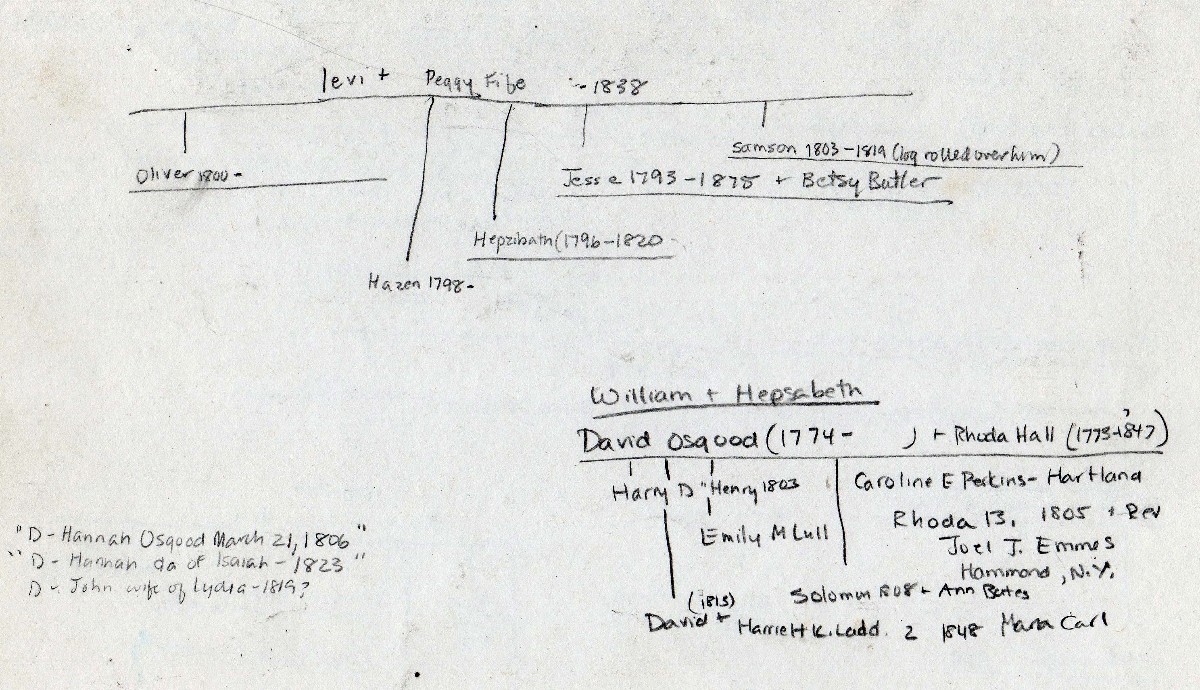 levi + Peggy Fife - 1838
Samson 1803-1819 (log rolled over him)
Oliver 1800-
Jesse 1793-1875 + Betsy Butler
Hepzibath (1796-1820
Hazen 1798-
William + Hepsabeth
David Osgood (1774- ) + Rhoda Hall (1773-1847)
Harry D "Henry 1803
Caroline E Perkins - Hartland
Rhoda B. 1805 + Rev
Emily M Lull
Joel J. Emmes
Hammond, N.Y.
Solomon 1808 + Ann Bates
(1815)
David + Harriett K. Ladd. 2 1848 Maria Carl
"D- Hannah Osgood March 21, 1806"
"D- Hannah da of Isaiah - 1823"
D- John wife of Lydia - 1819?